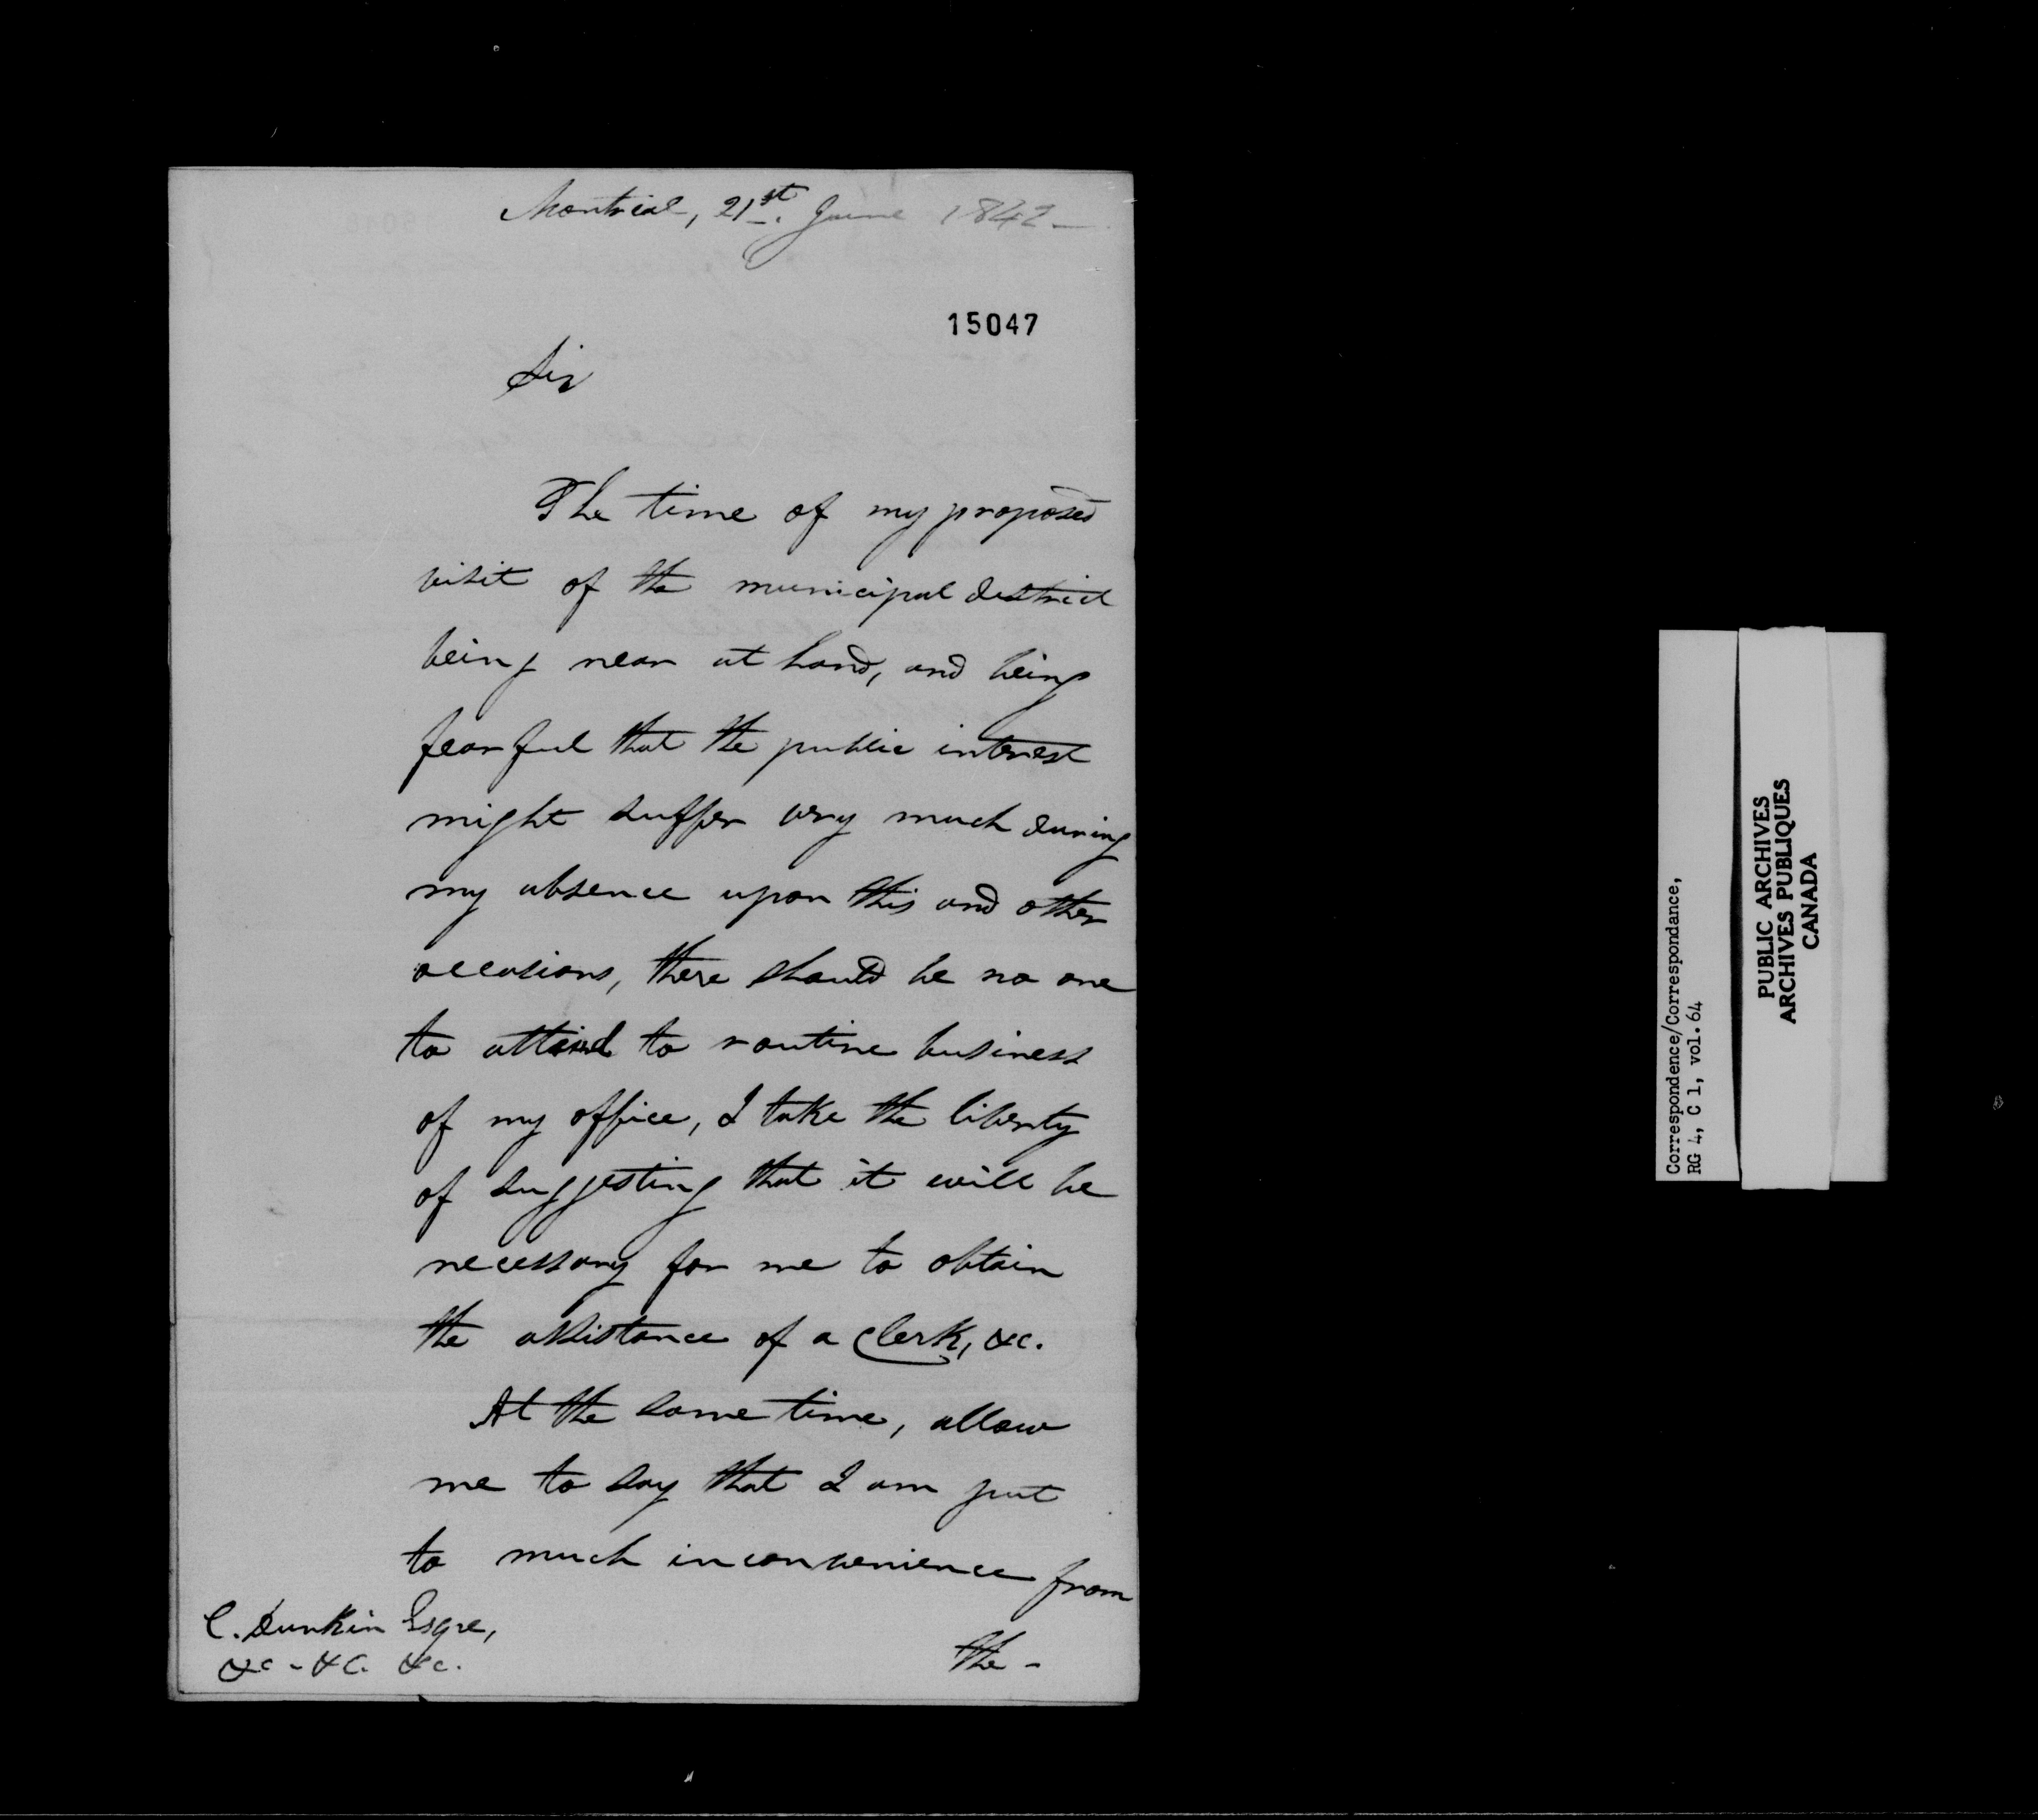 Montreal, 21st. June 1842_
15047
Sir
The time of my proposed
visit of the municipal district
being near at hand, and being
fearful that the public interest
might suffer very much during
my absence upon this and other
occasions, there should be no one
to attend to routine business
of my office, I take the liberty
of suggesting that it will be
necessary for me to obtain
the assistance of a Clerk, &c.
At the same time, allow
me to say that I am put
to much inconvenience from
the -
C. Dunkin Esqre,
&c - &c. &c.
Correspondence/Correspondance,
RG 4, C 1, vol.64
PUBLIC ARCHIVES
ARCHIVES PUBLIQUES
CANADA